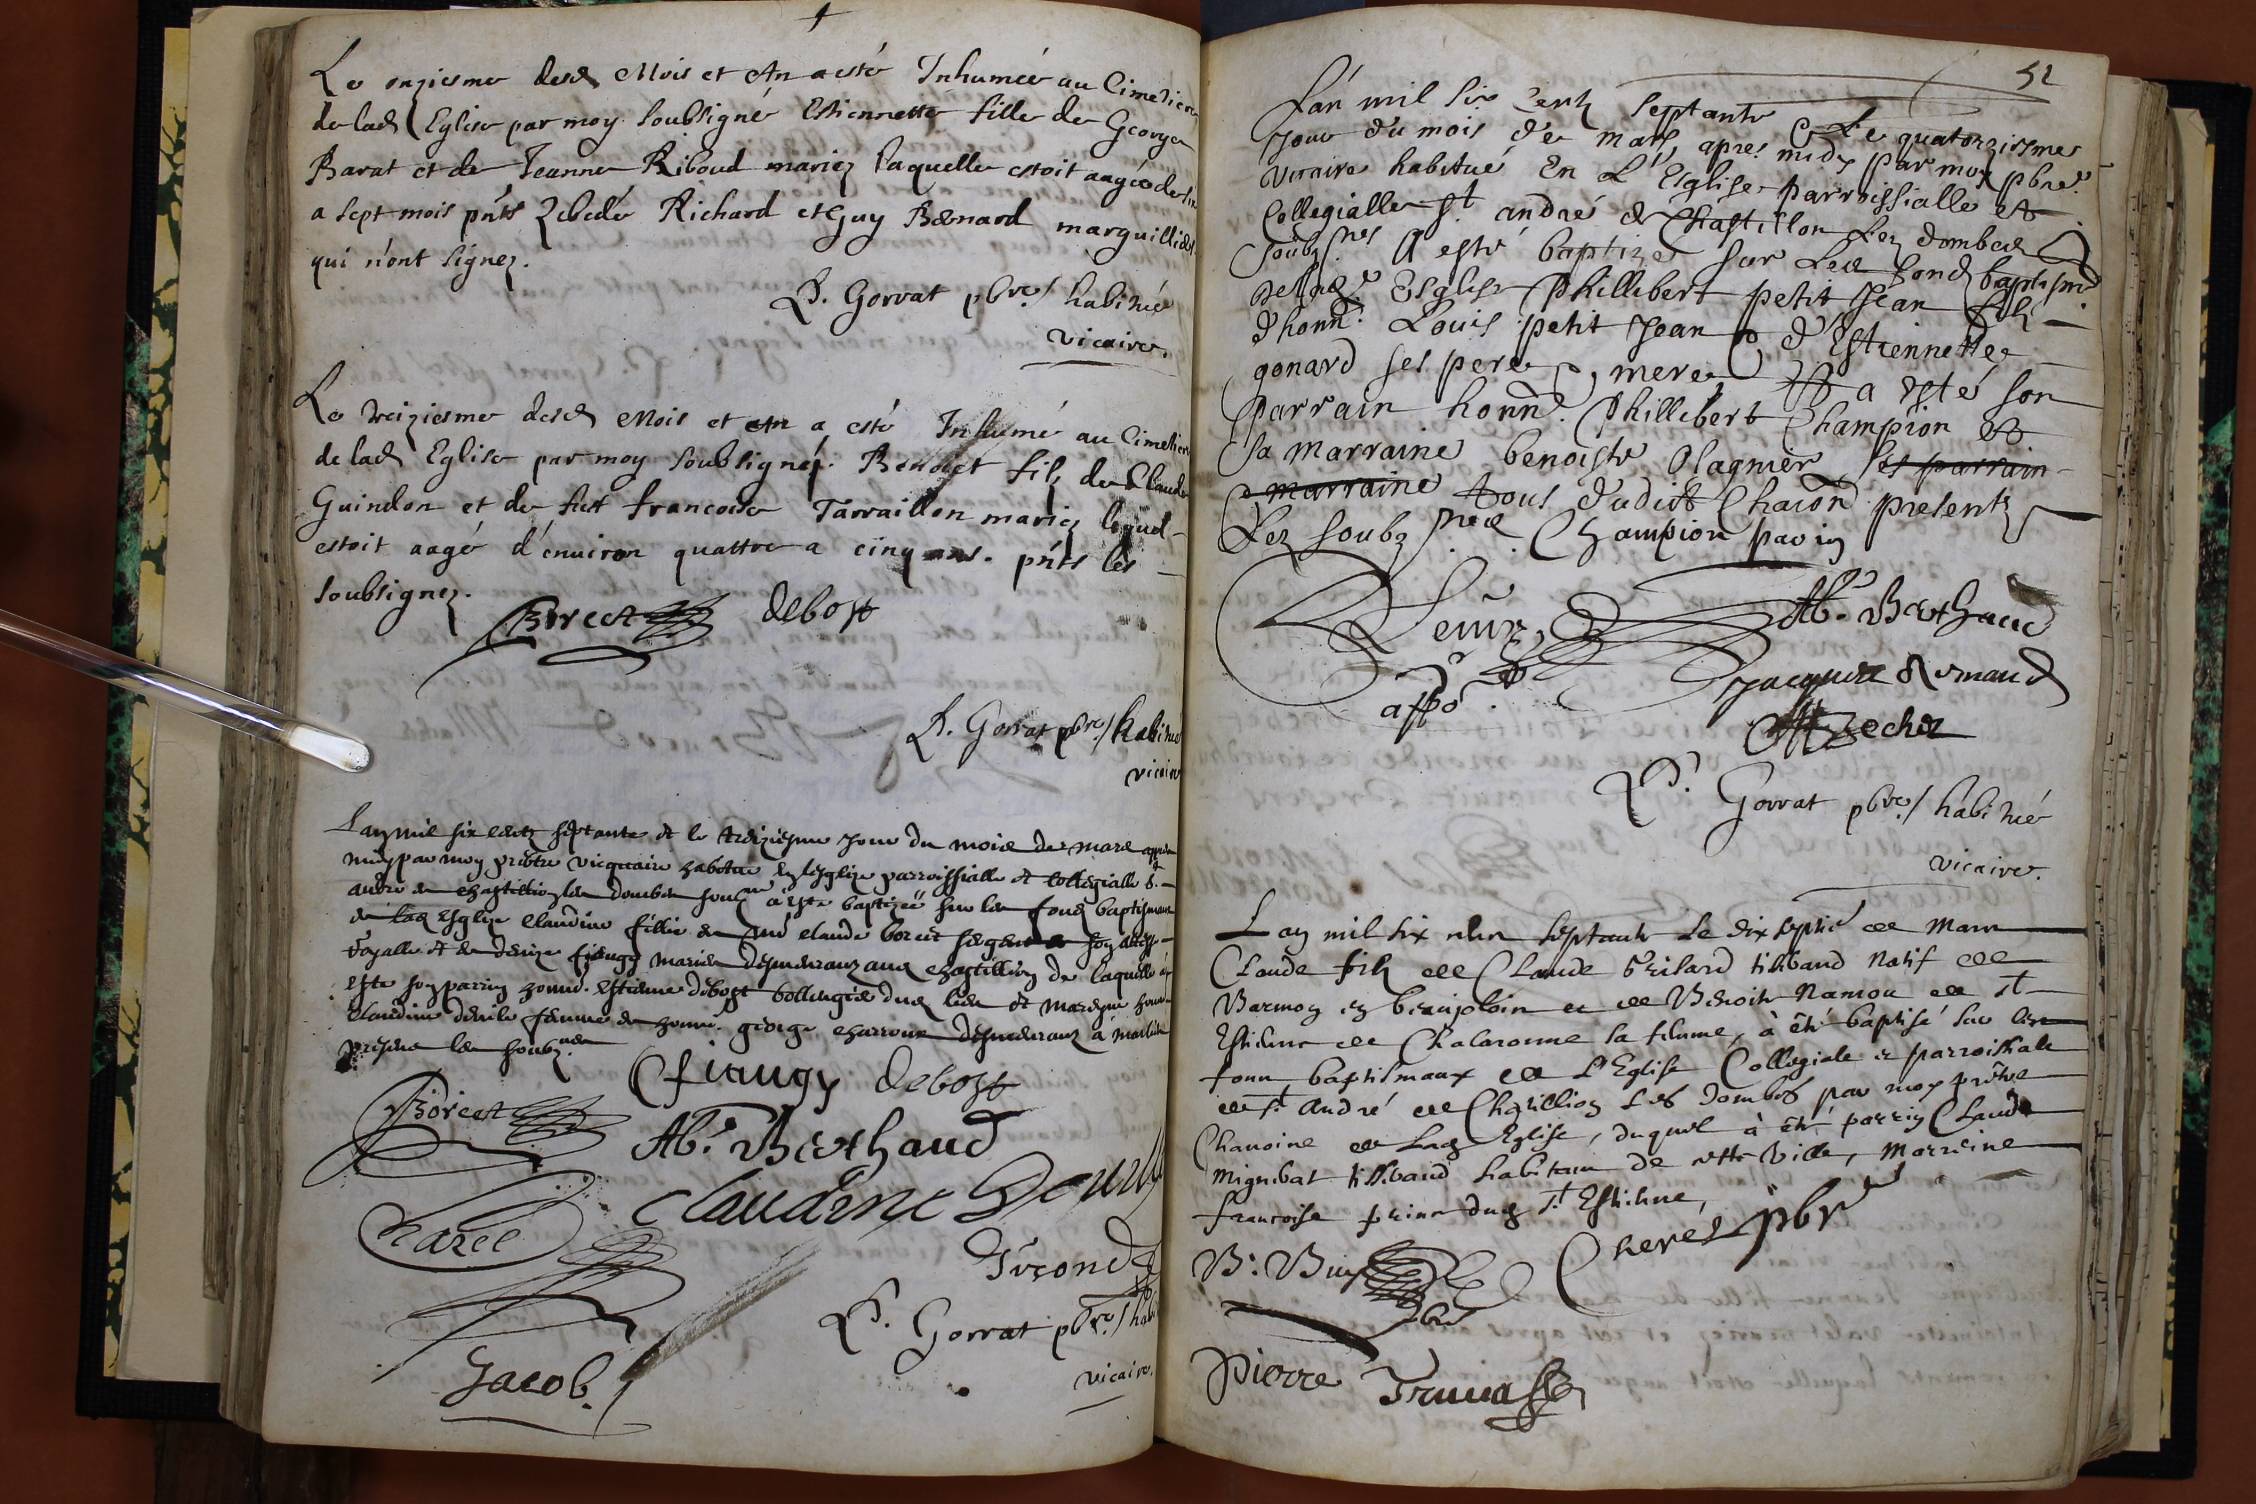 Le onziesme desd Mois et An a esté Inhumée au Cimetiere
de lad Eglise par moy soubsigné Estiennette fille de George
Barat et de Jeanne Riboud mariez laquelle estoit aagée de six
a sept mois pnts Zebedé Richard et Guy Benard marguilliers
qui n'ont signez.
P. Gorrat pbre / habitué
vicaire.
Le treiziesme desd Mois et An a esté Inhumé au Cimetiere
de lad Eglise par moy soubsigné Benoict fils de Claude
Guindon et de fust francoise Tarraillon mariez lequel
estoit aagé d'environ quattre a cinq ans. pnts les
soubsignez.
Boreet debost
P. Gorrat pbre / habitué
vicaire
Lan mil six centz septante et le treiziesme Jour du mois de mars apres
midy par moy prebtre vicquaire habitué en lesglize parroissialle et collegialle St
andre de chastillion les dombes soubz ne a este baptizeé sur les fondz baptismaux
de lad Esglize claudine fillie de Me claude boreet sergent
Royalle et de denize fiaugy mariez demeurantz aud chastillion de laquelle a
este son parrin honn. estienne debost bollengier dud lieu et mareyne honn
claudine femme de honn. george charrone demeurant a
presens les soubznes
fiaugy debost
Boreet
Ab. Berthaud
claudine
Charel
Gorrat pbre / habi
vicaire.
Jacob.
52
L'an mil six Centz septante & Le quatorziesme
jour du mois de Mars, apres midy par moy pbre
Vicaire habitué En L'Esglise parroissialle et
Collegialle St andré de Chastillon Lez dombes
soubznes A esté baptizé sur Les fondz baptism
dellad Esglise Phillibert petit Jean filz
d'honn. Louis petit Jean & d'Estiennette
gonard ses pere & mere, Et a esté son
parrain honn. Phillibert Champion et
sa Marraine benoiste Olagnier ses parrain
& marraine tous dudict Chaion presentz
Les soubznes. Champion parin
Ab. Berthaud
Jacques Renaud
P. Gorrat pbre / habitué
vicaire.
Lan mil six cens septante Le dix septie de Mars
Claude fils de Claude tisserand Natif de
en beaujolois et de Benoite de St
Estienne de Chalaronne sa femme, à été baptisé sur les
fonts baptismaux de L'Eglise Collegiale et parroissiale
de St André de Chatillion Les dombes par moy prêtre
Chanoine de Lad Eglise, duquel à été parrin Claude
Mignibat tisserand habitant de cette Ville, Marreine
francoise dud St Estienne,
Cheret pbr
B: Buy
Pierre